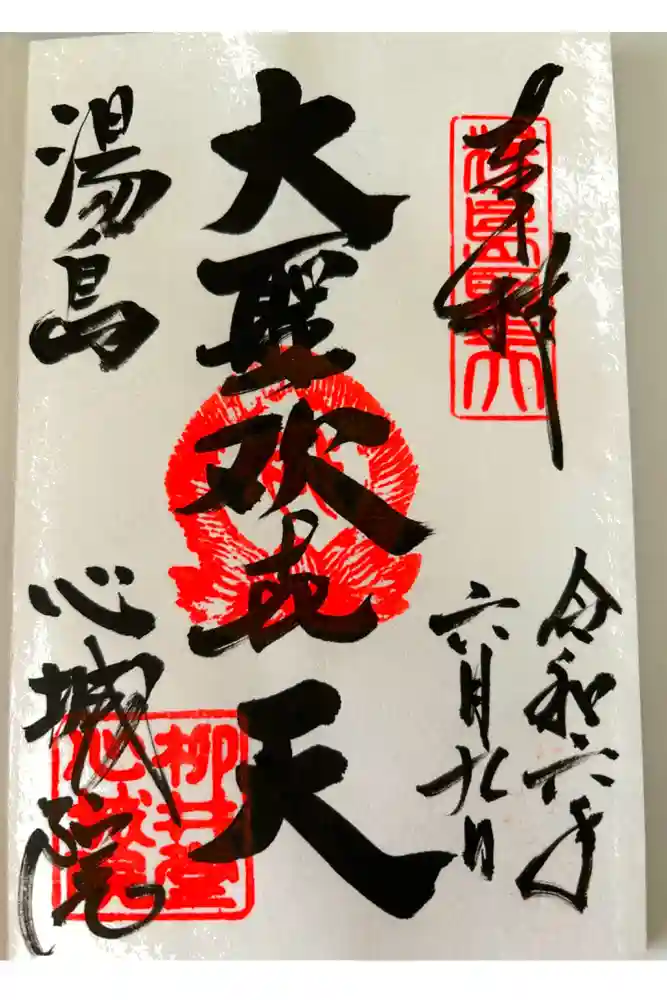 奉拝
湯島聖天
令和六年
六月九日
大聖歓喜天
湯島
心城院
柳井堂
心城院